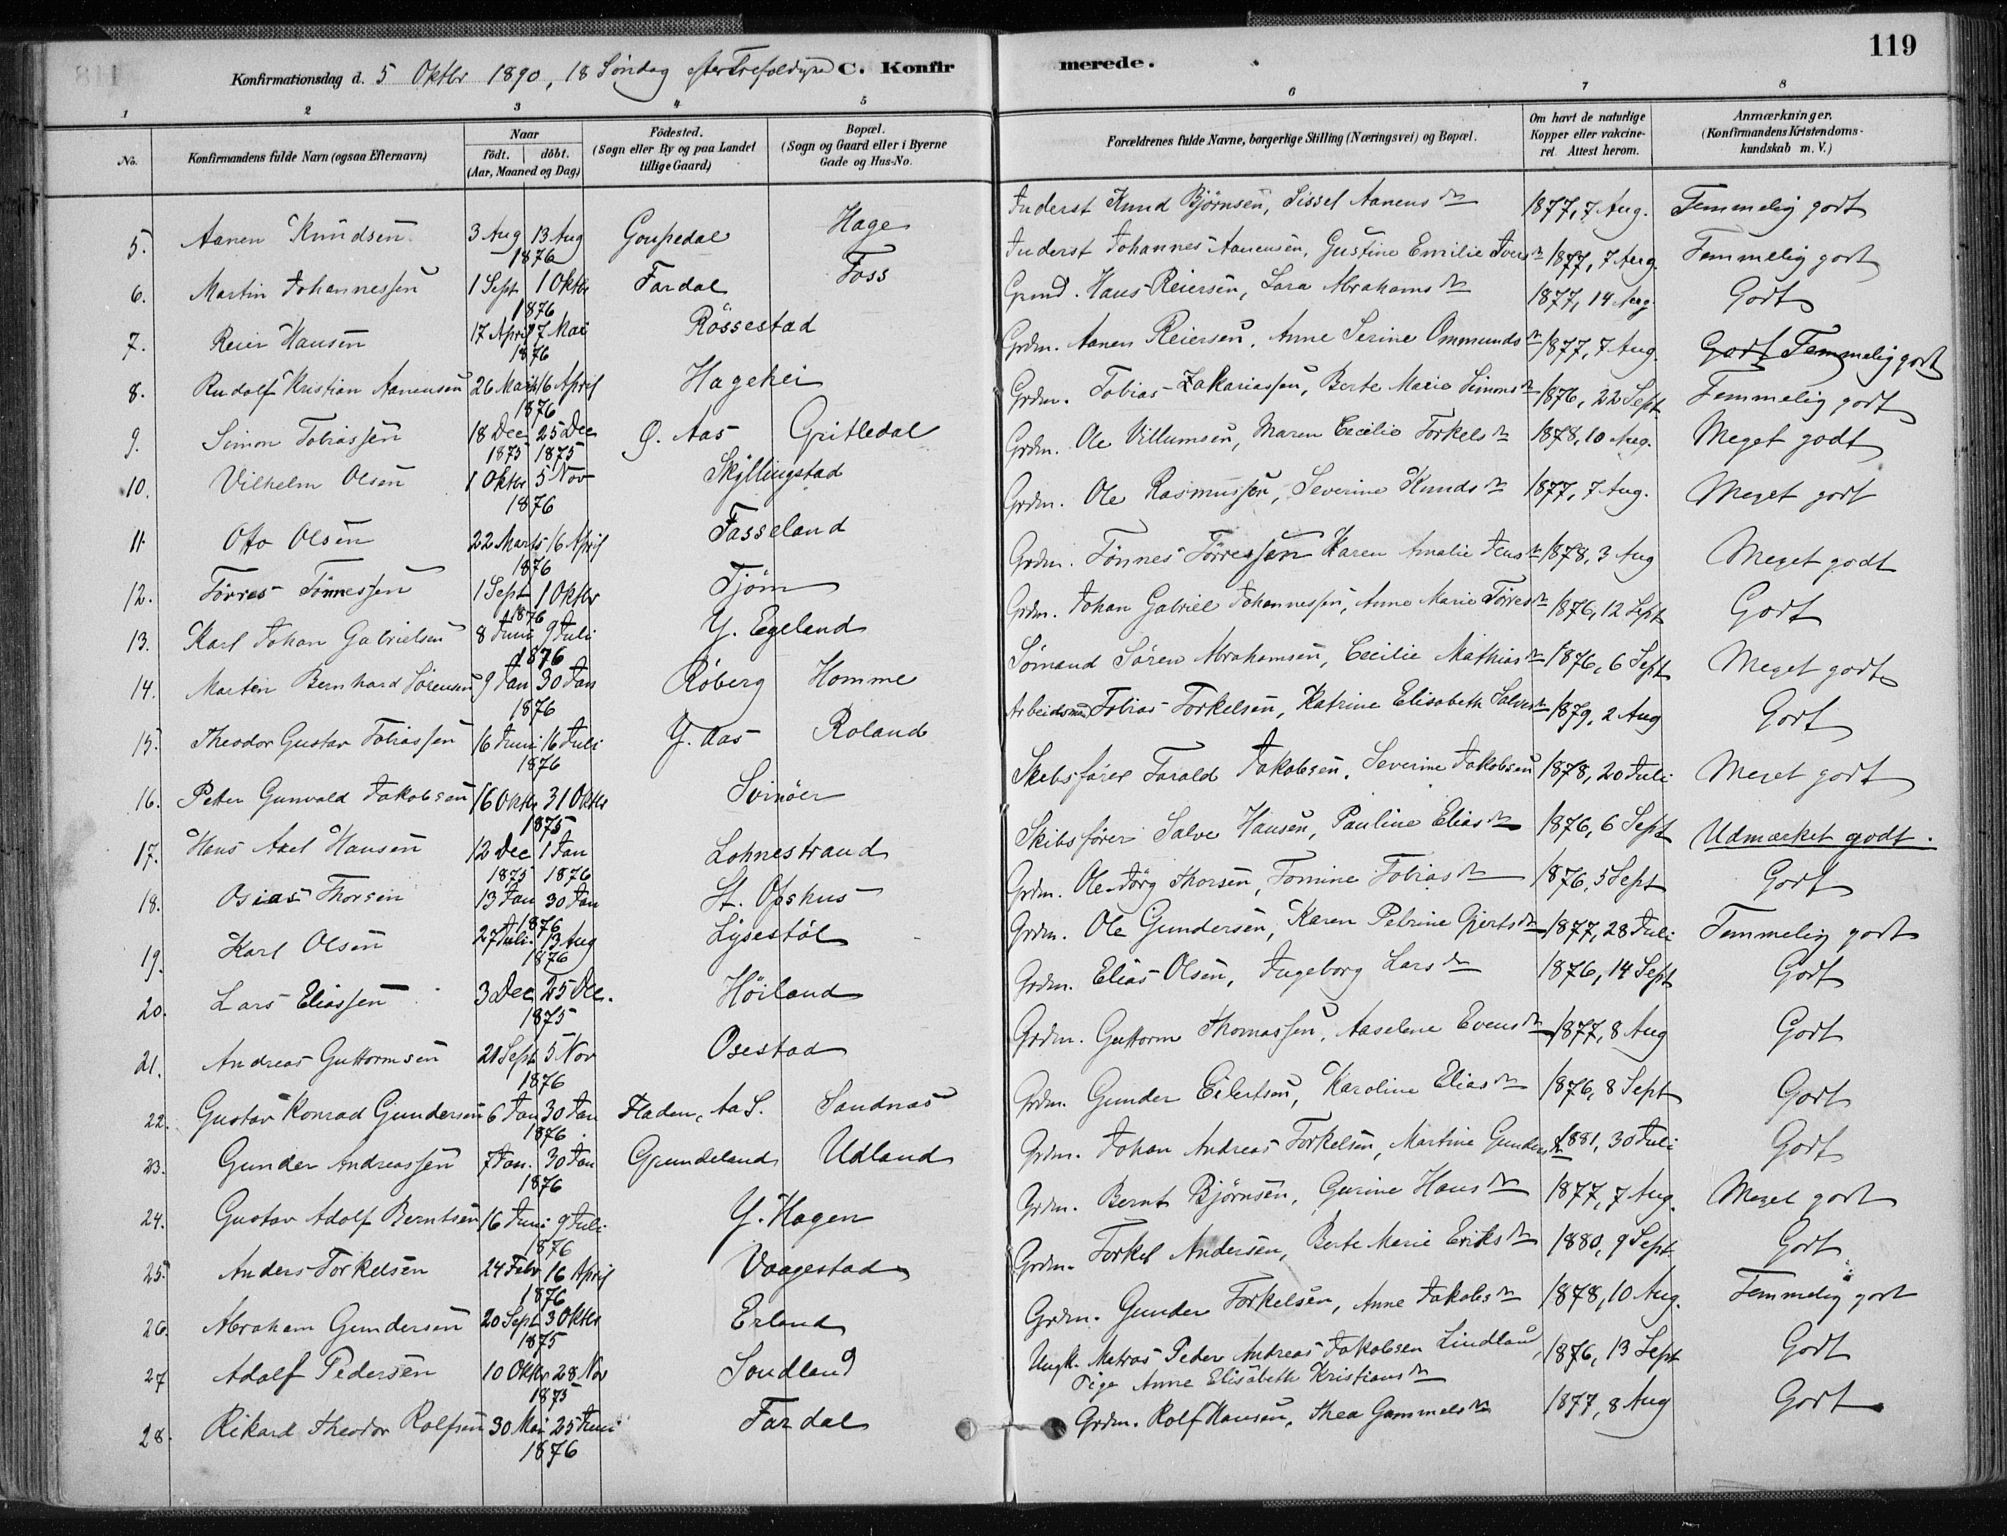 119
Konfirmationsdag d. 5 Oktbr 1890, 18 Søndag efter Trefoldighed C. Konfirmerede.
1 2 3 4 5 6 7 8
No. Konfirmandens fulde Navn (ogsaa Efternavn) Naar født. døbt. (Aar, Maaned og Dag) Fødested. (Sogn eller By og paa Landet tillige Gaard) Bopæl. (Sogn og Gaard eller i Byerne Gade og Hus-No. Forældrenes fulde Navne, borgerlige Stilling (Næringsvei) og Bopæl. Om havt de naturlige Kopper eller vakcineret. Attest herom. Anmærkninger. (Konfirmandens Kristendomskundskab m. V.)
5. Aanen Knudsen 3 Aug 13 Aug 1876 Goupedal Hage Inderst Knud Bjørnsen, Sissel Aanensdr 1877, 7 Aug. Temmelig godt
6. Martin Johannessen 1 Sept 1 Oktbr 1876 Fardal Foss Inderst Johannes Aanensen, Gustine Emilie Iversdr 1877, 7 Aug. Temmelig godt
7. Reier Hansen 17 April 7 Mai 1876 Røssestad Grmd. Hans Reiersen, Sara Abrahamsdr 1877, 14 Aug Godt
8. Rudolf Kristian Aanensen 26 Marts 16 April 1876 Hagehei Grdm. Aanen Reiersen, Anne Serine Ommundsdr 1877, 7 Aug. Godt Temmelig godt
9. Simon Tobiassen 18 Dec 1875 25 Dec 1875 Ø. Aas Gritledal Grdm. Tobias Zakariassen, Berte Marie Simonsdr 1876, 22 Sept Temmelig godt
10. Vilhelm Olsen 1 Oktbr 5 Nov 1876 Skyllingstad Grdm. Ole Villumsen, Maren Cecilie Torkelsdr 1878, 10 Aug. Meget godt
11. Otto Olsen 22 Marts 16 April 1876 Fasseland Grdm. Ole Rasmussen, Severine Knudsdr 1877, 7 Aug. Meget godt
12. Tørres Tønnessen 1 Sept 1 Oktbr 1876 Tjøm Grdm. Tønnes Tørressen Karen Amalie Jensdr 1878, 3 Aug Meget godt
13. Karl Johan Gabrielsen 8 Juni 9 Juli 1876 Y. Egeland Grdm. Johan Gabriel Johannessen, Anne Marie Tørresdr 1876, 12 Sept Godt
14. Martin Bernhard Sørensen 9 Jan 30 Jan 1876 Røberg Homme Sømand Søren Abrahamsen, Cecilie Mathiasdr 1876, 6 Sept Meget godt
15. Theodor Gustav Tobiassen 16 Juni 16 Juli 1876 Y. Aas Roland Arbeidsmd Tobias Torkelsen, Katrine Elisabeth Salvesdr 1879, 2 Aug Godt
16. Peter Gunvald Jakobsen 16 Oktbr 31 Oktbr 1875 Svinøer Skibsfører Tarald Jakobsen, Severine Jakobsen 1878, 20 Juli Meget godt
17. Hans Axel Hansen 12 Dec 1875 1 Jan 1876 Lohnestrand Skibsfører Salve Hansen, Pauline Eliasdr 1876, 6 Sept Udmærket godt.
18. Osias Thorsen 13 Jan 30 Jan 1876 St. Ofshus Grdm. Ole Jørg Thorsen, Tomine Tobiasdr 1876, 5 Sept Godt
19. Karl Olsen 27 Juli 13 Aug 1876 Lysestøl Grdm. Ole Gundersen, Karen Petrine Gjertsdr 1877, 28 Juli Temmelig godt
20. Lars Eliassen 3 Dec 25 Dec. 1875 Høiland Grdm. Elias Olsen, Ingeborg Larsdr 1876, 14 Sept Godt
21. Andreas Guttormsen 21 Sept 5 Nov 1876 Osestad Grdm. Guttorm Thomassen, Aaselene Evensdr 1877, 8 Aug Godt
22. Gustav Konrad Gundersen 6 Jan 30 Jan 1876 Fladen, AaS. Sandnæs Grdm. Gunder Eilertsen, Karoline Eliasdr 1876, 8 Sept Godt
23. Gunder Andreassen 7 Jan. 30 Jan 1876 Grundeland Udland Grdm. Johan Andreas Torkelsen, Martine Gundersdr 1881, 30 Juli Godt
24. Gustav Adolf Berntsen 16 Juni 9 Juli 1876 Y. Hagen Grdm. Bernt Bjørnsen, Gurine Hansdr 1877, 7 Aug. Meget godt
25. Anders Torkelsen 24 Febr 16 April 1876 Vaagestad Grdm. Torkel Andersen, Berte Marie Eriksdr 1880, 9 Sept Godt
26. Abraham Gundersen 20 Sept 3 Oktbr 1875 Erland Grdm. Gunder Torkelsen, Anne Jakobsdr 1878, 10 Aug. Temmelig godt
27 Adolf Pedersen 10 Oktbr 28 Nov 1875 Sondland Ungk. Matros Peder Andreas Jakobsen Lindland, Pige Anne Elisabeth Kristiansdr 1876, 13 Sept Godt
28. Rikard Theodor Rolfsen 30 Mai 25 Juni 1876 Fardal Grdm. Rolf Hansen, Thea Gammelsdr 1877, 8 Aug Godt